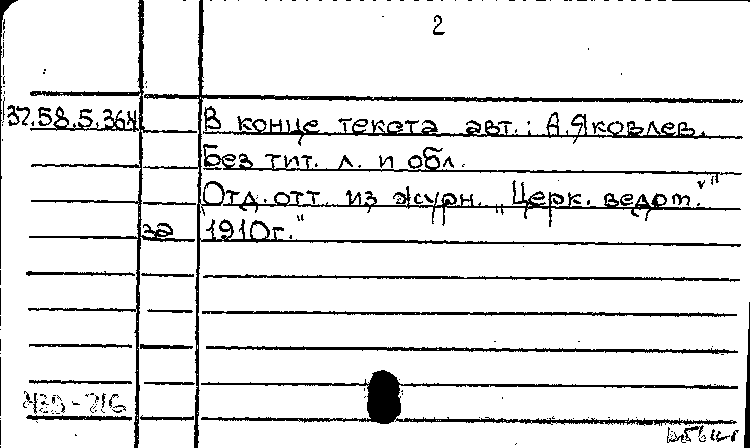 2
37.58.5.364 В конце текста авт.: А.Яковлев.
Без тит. л. и обл.
Отд. отт. из журн. „Церк. ведом."
за 1910г."